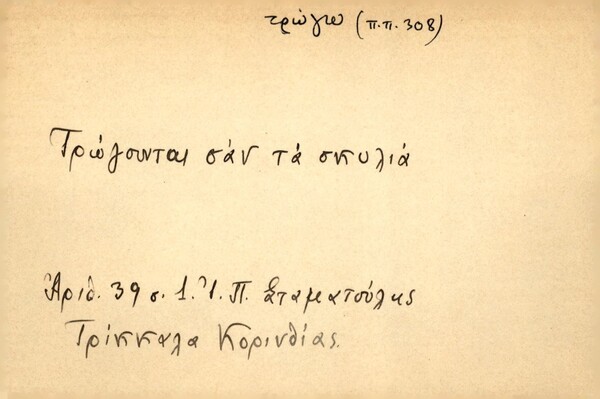 τρώγω (π.π. 308)
Τρώγουνται σάν τά σκυλιά
Ἀριθ. 39 σ. 1. Ἰ. Π. Σταματούλης
Τρίκκαλα Κορινθίας.